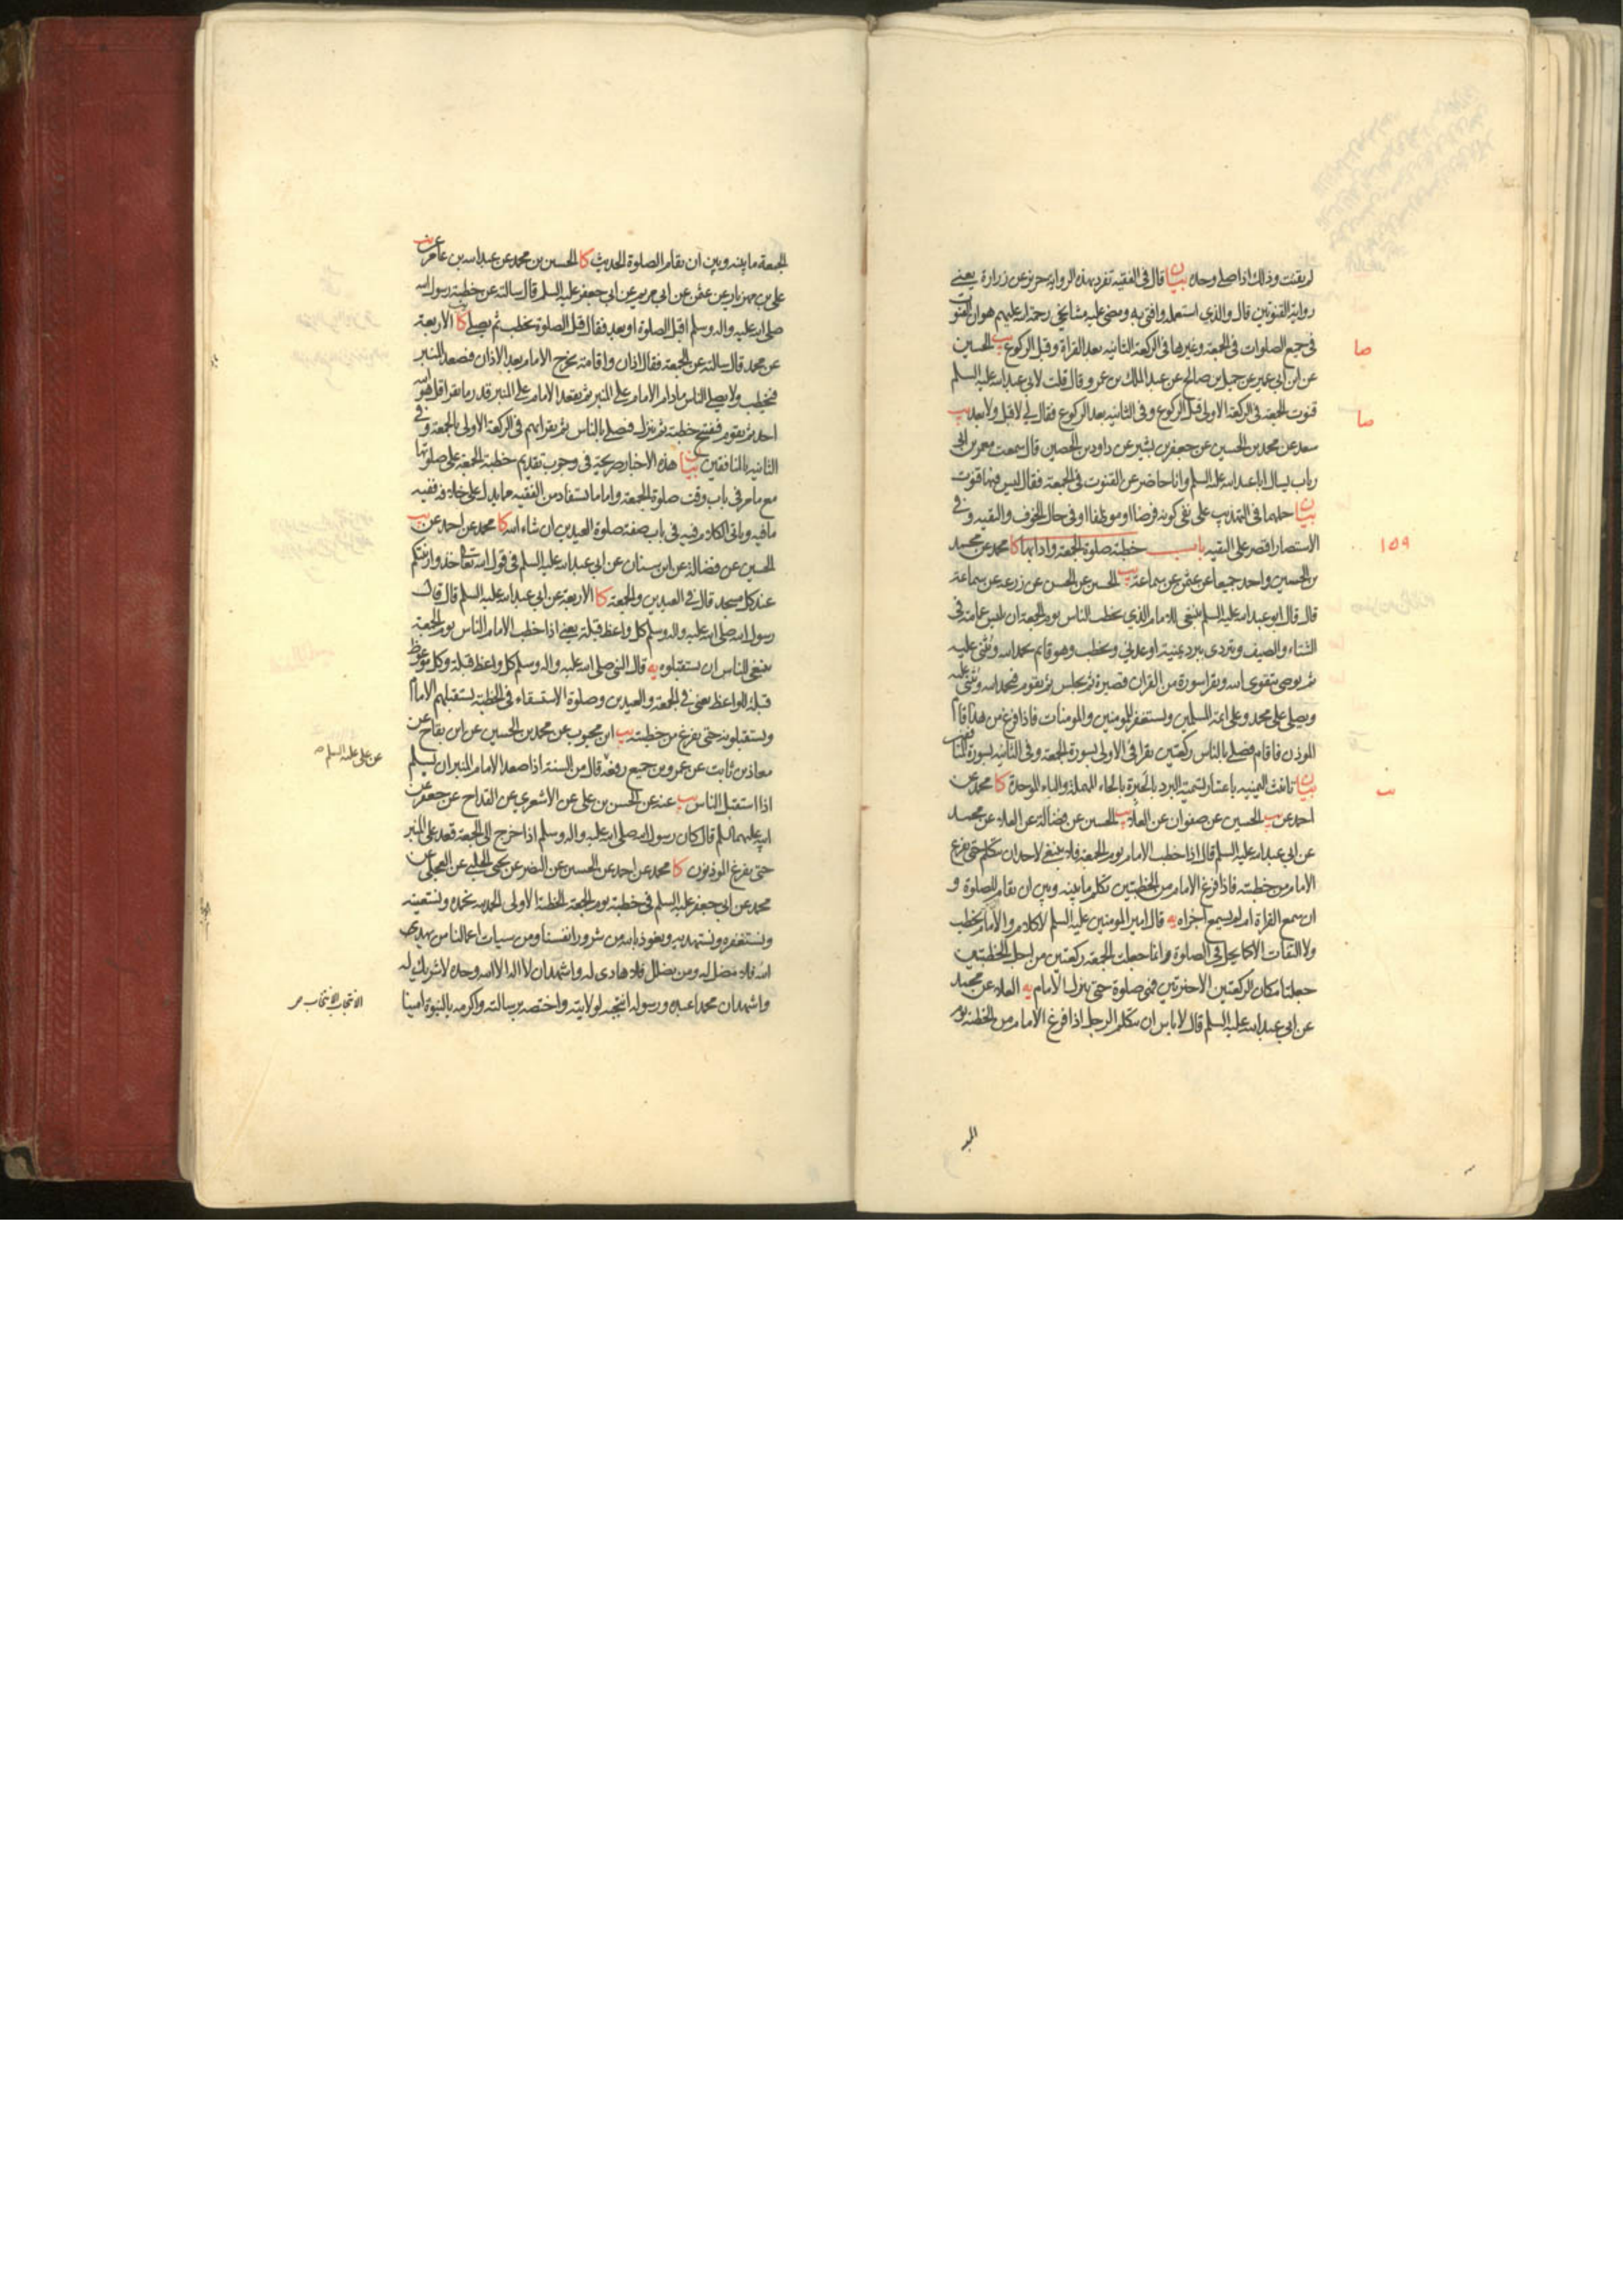 لم يقنت وذلك اذا صلى وحده بيان قال في الفقيه تفرد بهذه الرواية حريز عن زرارة يعني
رواية القنوتين قال والذي استعمله وافتى به ومضى عليه مشايخي رحمة الله عليهم هو ان القنوت
في جميع الصلوات في الجمعة وغيرها في الركعة الثانية بعد القراة وقبل الركوع يب الحسين
صا
عن ابن ابي عمير عن جميل بن صالح عن عبد الملك بن عمرو قال قلت لابي عبد الله عليه السلم
قنوت الجمعة في الركعة الاولى قبل الركوع وفي الثانية بعد الركوع فقال لي لا قبل ولا بعد يب
صا
سعد عن محمد بن الحسين عن جعفر بن بشير عن داود بن الحصين قال سمعت معمر بن ابي
رياب يسال ابا عبد الله عليه السلم وانا حاضر عن القنوت في الجمعة فقال ليس فيها قنوت
بيان حملهما في التهذيب على نفي كونه فرضا او موظفا او في حال الخوف والتقية وفي
الاستبصار اقتصر على التقية باب خطبة صلوة الجمعة وادابها كا محمد عن محمد
١٥٩
بن الحسين واحمد جميعا عن عثمن عن سماعة يب الحسين عن الحسن عن زرعة عن سماعة
قال قال ابو عبد الله عليه السلم ينبغي للامام الذي يخطب الناس يوم الجمعة ان يلبس عمامة في
الشتاء والصيف ويتردى ببرد يمنية او عدني ويخطب وهو قايم يحمد الله ويثني عليه
ثم يوصي بتقوى الله ويقرا سورة من القران قصيرة ثم يجلس ثم يقوم فيحمد الله ويثني عليه
ويصلي على محمد وعلى ائمة المسلمين ويستغفر للمومنين والمومنات فاذا فرغ من هذا قام
الموذن فاقام فصلى بالناس ركعتين يقرا في الاولى بسورة الجمعة وفي الثانية بسورة المنافقين
بيان تانيث اليمنية باعتبار تسمية البرد بالحبرة بالحاء المهملة والباء الموحدة كا محمد عن
احمد عن يب الحسين عن صفوان عن العلا يب الحسين عن فضالة عن العلا عن محمد
عن ابي عبد الله عليه السلم قال اذا خطب الامام يوم الجمعة فلا ينبغي لاحد ان يتكلم حتى يفرغ
الامام من خطبته فاذا فرغ الامام من الخطبتين تكلم ما بينه وبين ان يقام للصلوة و
ان سمع القراة ام لم يسمع اجزاه يه قال امير المومنين عليه السلم لا كلام والامام يخطب
ولا التفات الا كما يحل في الصلوة وانما جعلت الجمعة ركعتين من اجل الخطبتين
جعلتا مكان الركعتين الاخيرتين فهي صلوة حتى ينزل الامام يه العلا عن محمد
عن ابي عبد الله عليه السلم قال لا باس ان يتكلم الرجل اذا فرغ الامام من الخطبة يوم
الجمعة ما بينه وبين ان تقام الصلوة الحديث كا الحسين بن محمد عن عبد الله بن عامر عن يب
علي بن مهزيار عن عثمن عن ابي مريم عن ابي جعفر عليه السلم قال سالته عن خطبة رسول الله
صلى الله عليه واله وسلم اقبل الصلوة او بعد فقال قبل الصلوة يخطب ثم يصلي كا الاربعة
عن محمد قال سالته عن الجمعة فقال اذان واقامة يخرج الامام بعد الاذان فيصعد المنبر
فيخطب ولا يصلي الناس مادام الامام على المنبر ثم يقعد الامام على المنبر قدر ما يقرا قل هو الله
احد ثم يقوم فيفتتح خطبة ثم ينزل فيصلي بالناس ثم يقرا بهم في الركعة الاولى بالجمعة وفي
الثانية بالمنافقين بيان هذه الاخبار صريحة في وجوب تقديم خطبة الجمعة على صلوتها
مع ما مر في باب وقت صلوة الجمعة واما ما يستفاد من الفقيه مما يدل على خلافه ففيه
ما فيه وياتي الكلام فيه في باب صفة صلوة العيدين ان شاء الله كا محمد عن احمد عن يب
الحسين عن فضالة عن ابن سنان عن ابي عبد الله عليه السلم في قول الله تعا خذوا زينتكم
عند كل مسجد قال في العيدين والجمعة كا الاربعة عن ابي عبد الله عليه السلم قال قال
رسول الله صلى الله عليه واله وسلم كل واعظ قبلة يعني اذا خطب الامام الناس يوم الجمعة
ينبغي للناس ان يستقبلوه يه قال النبي صلى الله عليه واله وسلم كل واعظ قبلة وكل موعوظ
قبلة للواعظ يعني في الجمعة والعيدين وصلوة الاستسقاء في الخطبة يستقبلهم الامام
ويستقبلونه حتى يفرغ من خطبته يب ابن محبوب عن محمد بن الحسين عن ابن بقاح عن
معاذ بن ثابت عن عمرو بن جميع رفعه قال من السنة اذا صعد الامام المنبر ان يسلم
عن علي عليه السلم
اذا استقبل الناس يب عنه عن الحسن بن علي عن الاشعري عن القداح عن جعفر عن
ابيه عليهما السلم قال كان رسول الله صلى الله عليه واله وسلم اذا خرج الى الجمعة قعد على المنبر
حتى يفرغ الموذنون كا محمد عن احمد عن الحسين عن النضر عن يحيى الحلبي عن العجلي عن
محمد عن ابي جعفر عليه السلم في خطبة يوم الجمعة الخطبة الاولى الحمد لله نحمده ونستعينه
ونستغفره ونستهديه ونعوذ بالله من شرور انفسنا ومن سيات اعمالنا من يهدي
الله فلا مضل له ومن يضلل فلا هادي له واشهد ان لا اله الا الله وحده لا شريك له
واشهد ان محمدا عبده ورسوله انتجبه لولايته واختصه برسالته واكرمه بالنبوة امينا
الانتجاب الانتخاب